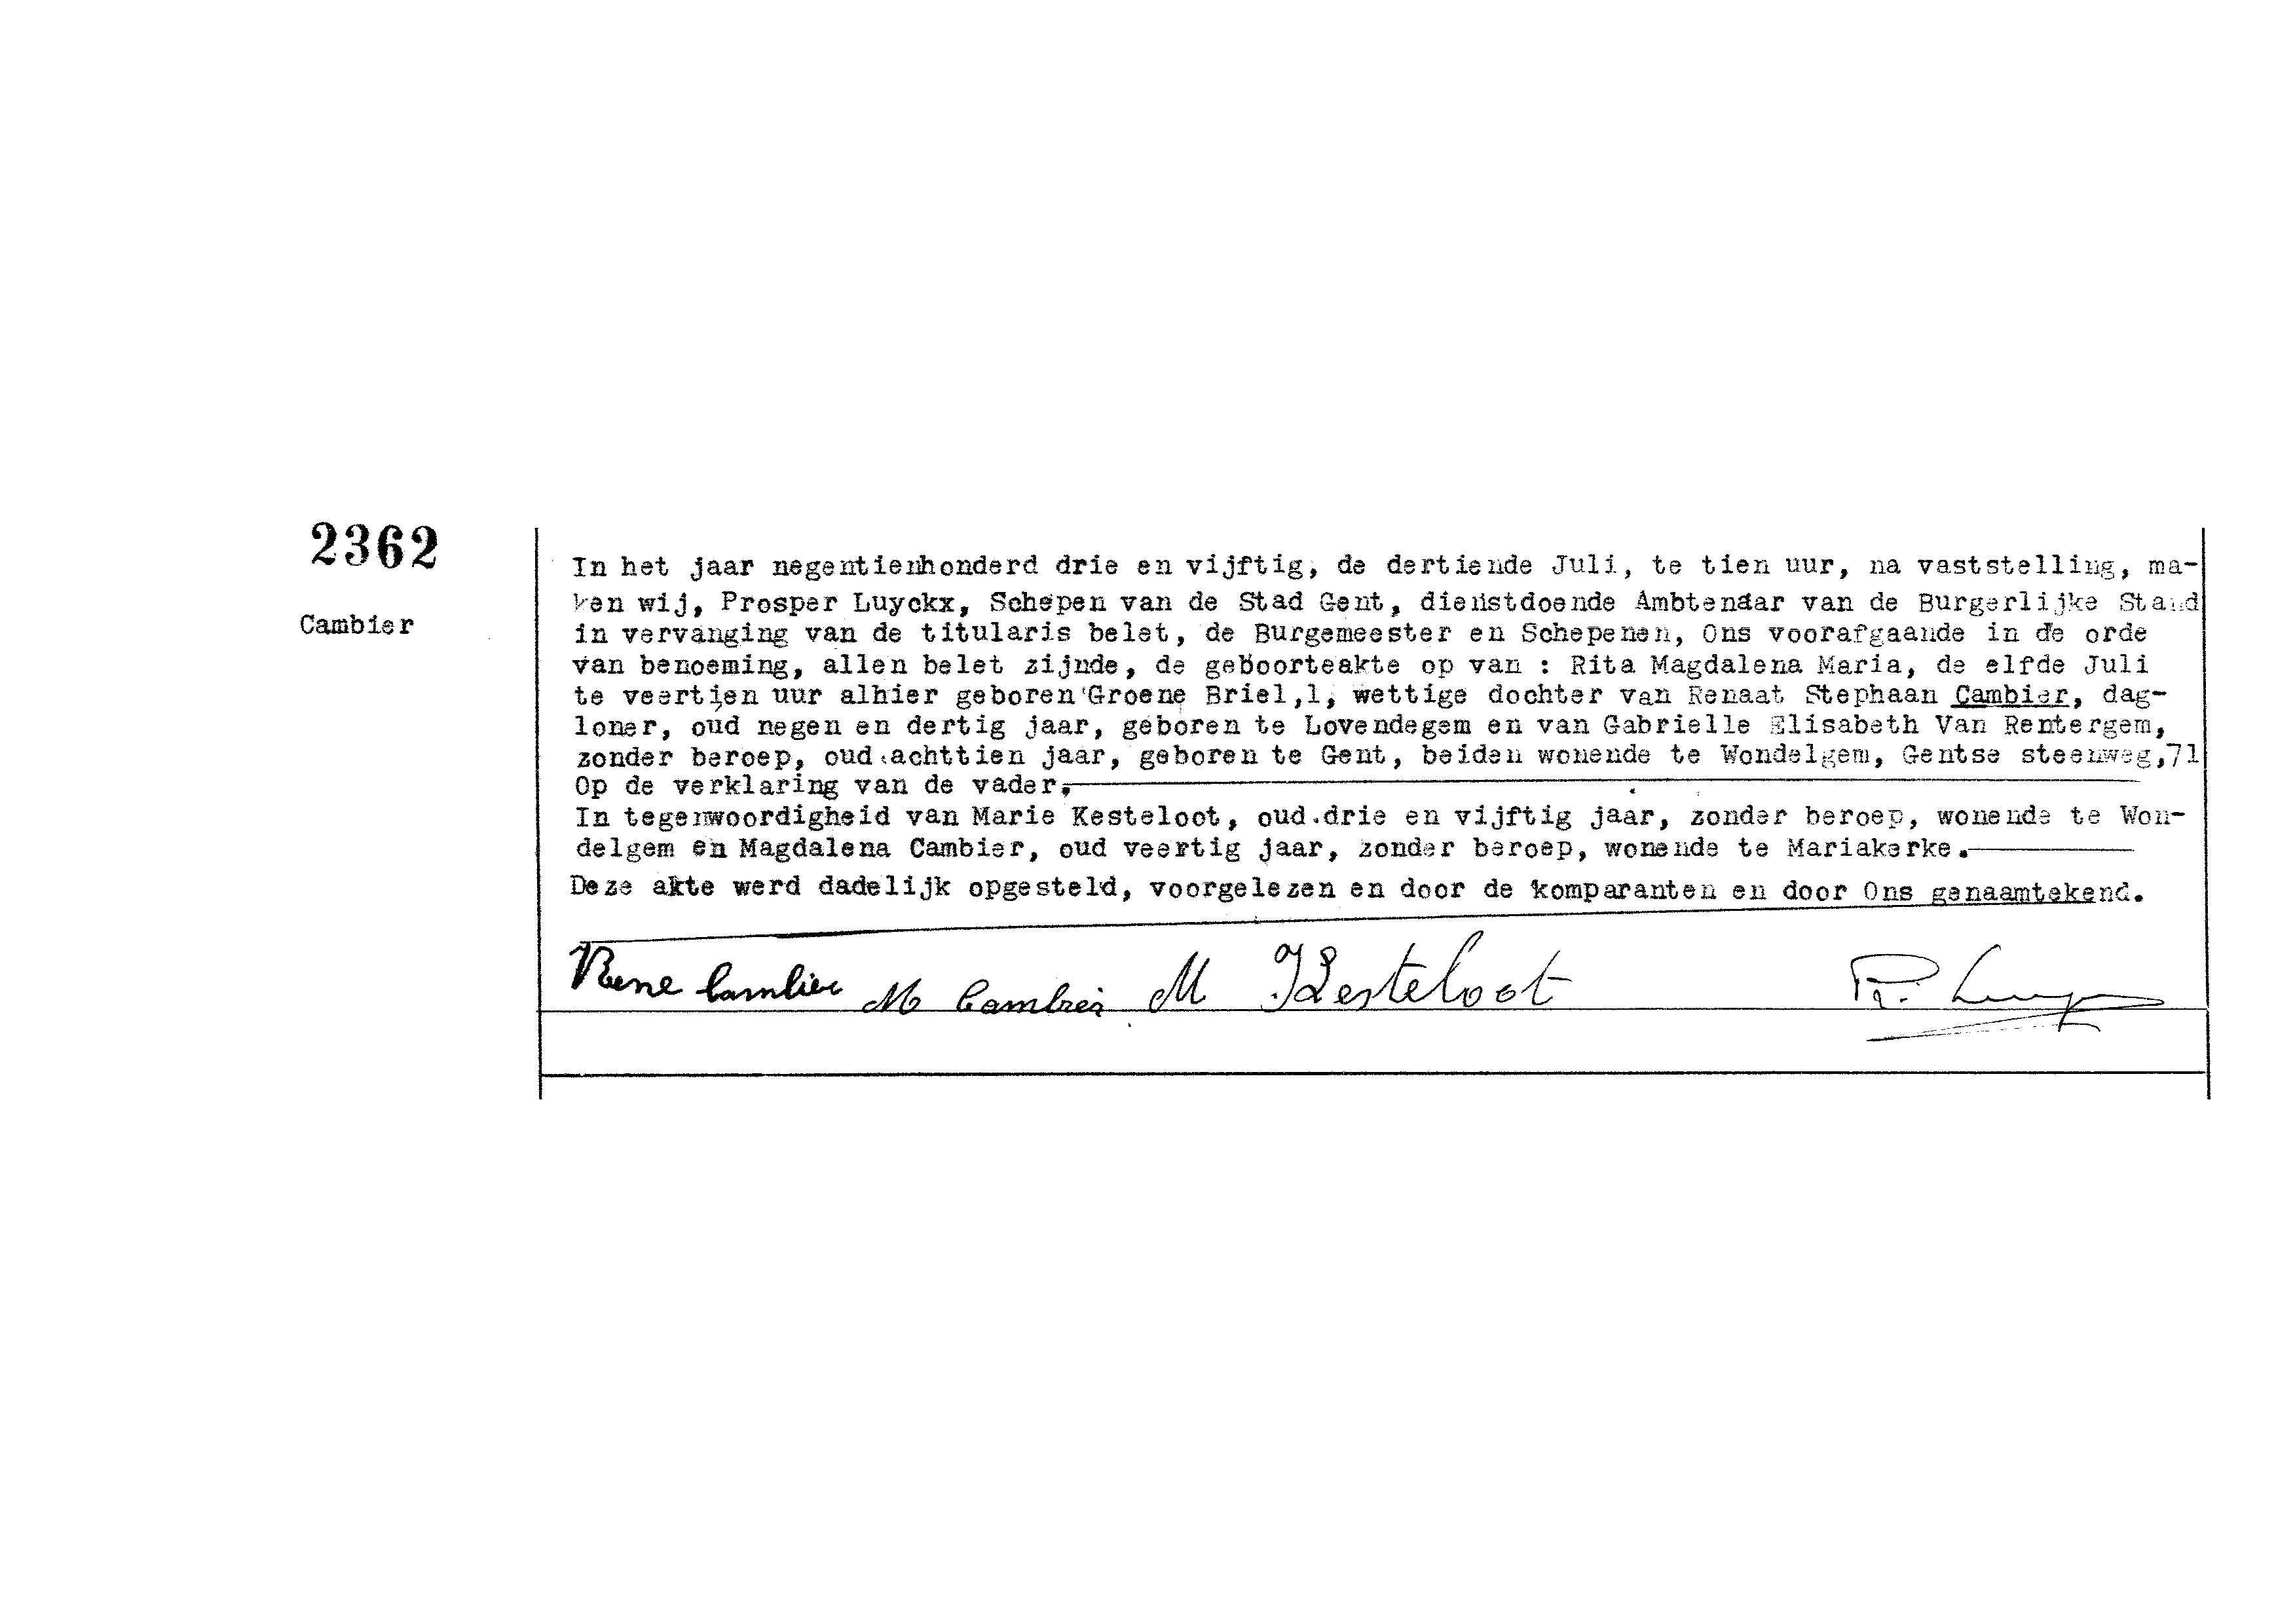 2362
Cambier
In het jaar negentienhonderd drie en vijftig, de dertiende Juli, te tien uur, na vaststelling, ma-
ken wij, Prosper Luyckx, Schepen van de Stad Gent, dienstdoende Ambtenaar van de Burgerlijke Stand
in vervanging van de titularis belet, de Burgemeester en Schepenen, Ons voorafgaande in de orde
van benoeming, allen belet zijnde, de geboorteakte op van : Rita Magdalena Maria, de elfde Juli
te veertien uur alhier geboren Groene Briel,1, wettige dochter van Renaat Stephaan Cambier, dag-
loner, oud negen en dertig jaar, geboren te Lovendegem en van Gabrielle Elisabeth Van Rentergem,
zonder beroep, oud achttien jaar, geboren te Gent, beiden wonende te Wondelgem, Gentse steenweg,71
Op de verklaring van de vader,
In tegenwoordigheid van Marie Kesteloot, oud drie en vijftig jaar, zonder beroep, wonende te Won-
delgem en Magdalena Cambier, oud veertig jaar, zonder beroep, wonende te Mariakerke.
Deze akte werd dadelijk opgesteld, voorgelezen en door de komparanten en door Ons genaamtekend.
Rene Cambier M Cambier M Kesteloot